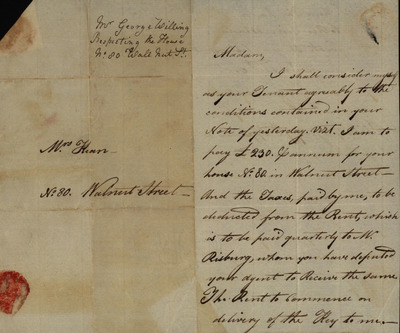 Mr George Willing
Respecting the House
No 80 Wall Nut St.
Mrs
No. 80. Walnut Street
Madam,
I shall consider myself
as your Tenant agreably to the
conditions contained in your
Note of yesterday. Vizt. I am to
pay £ 230. annum for your
house No. 80 in Walnut Street
And the Taxes, paid by me, to be
deducted from the Rent, which
is to be paid quarterly to Mr.
Risburg, whom you have deputed
your agent to Receive the same.
The Rent to Commence on
delivery of the Key to me